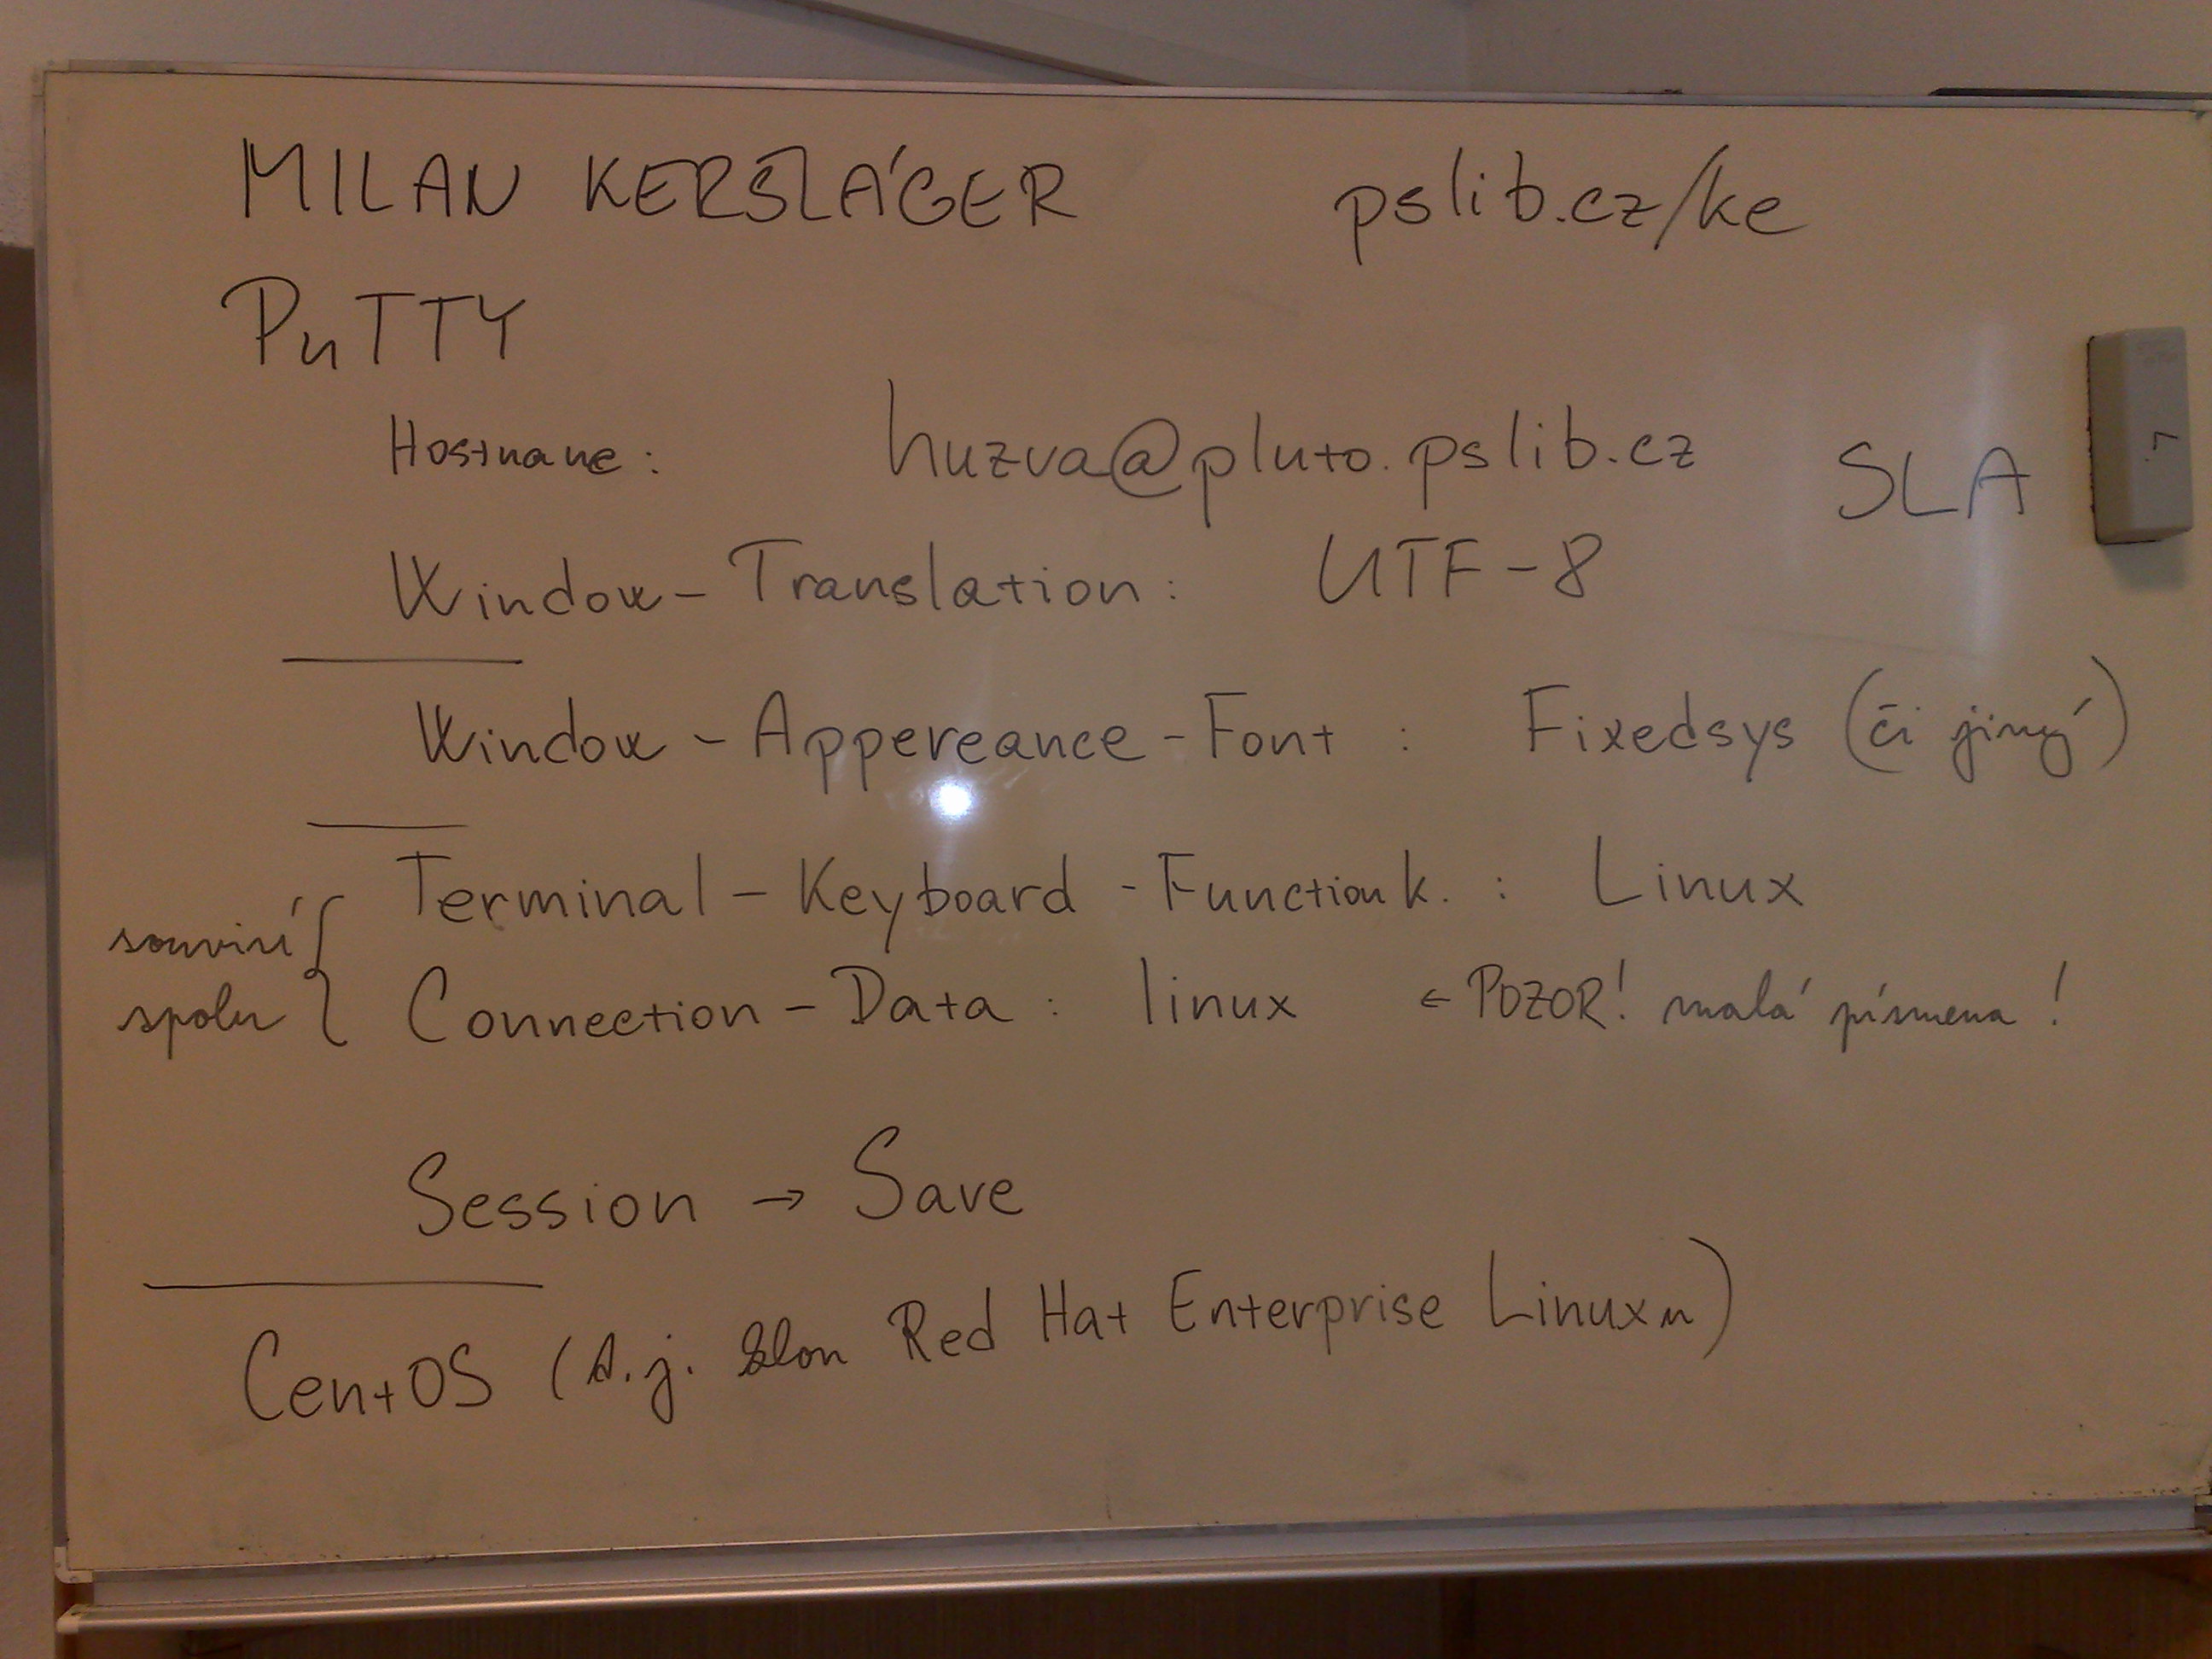 MILAN KERSLÁGER pslib.cz/ke
PuTTY
Hostname: huzva@pluto.pslib.cz SLA
Window - Translation: UTF-8
Window - Appereance - Font : Fixedsys (či jiný)
Terminal - Keyboard - Function k. : Linux
souvisí
spolu
Connection - Data : linux ← POZOR! malá písmena!
Session → Save
CentOS (t.j. klon Red Hat Enterprise Linuxu)